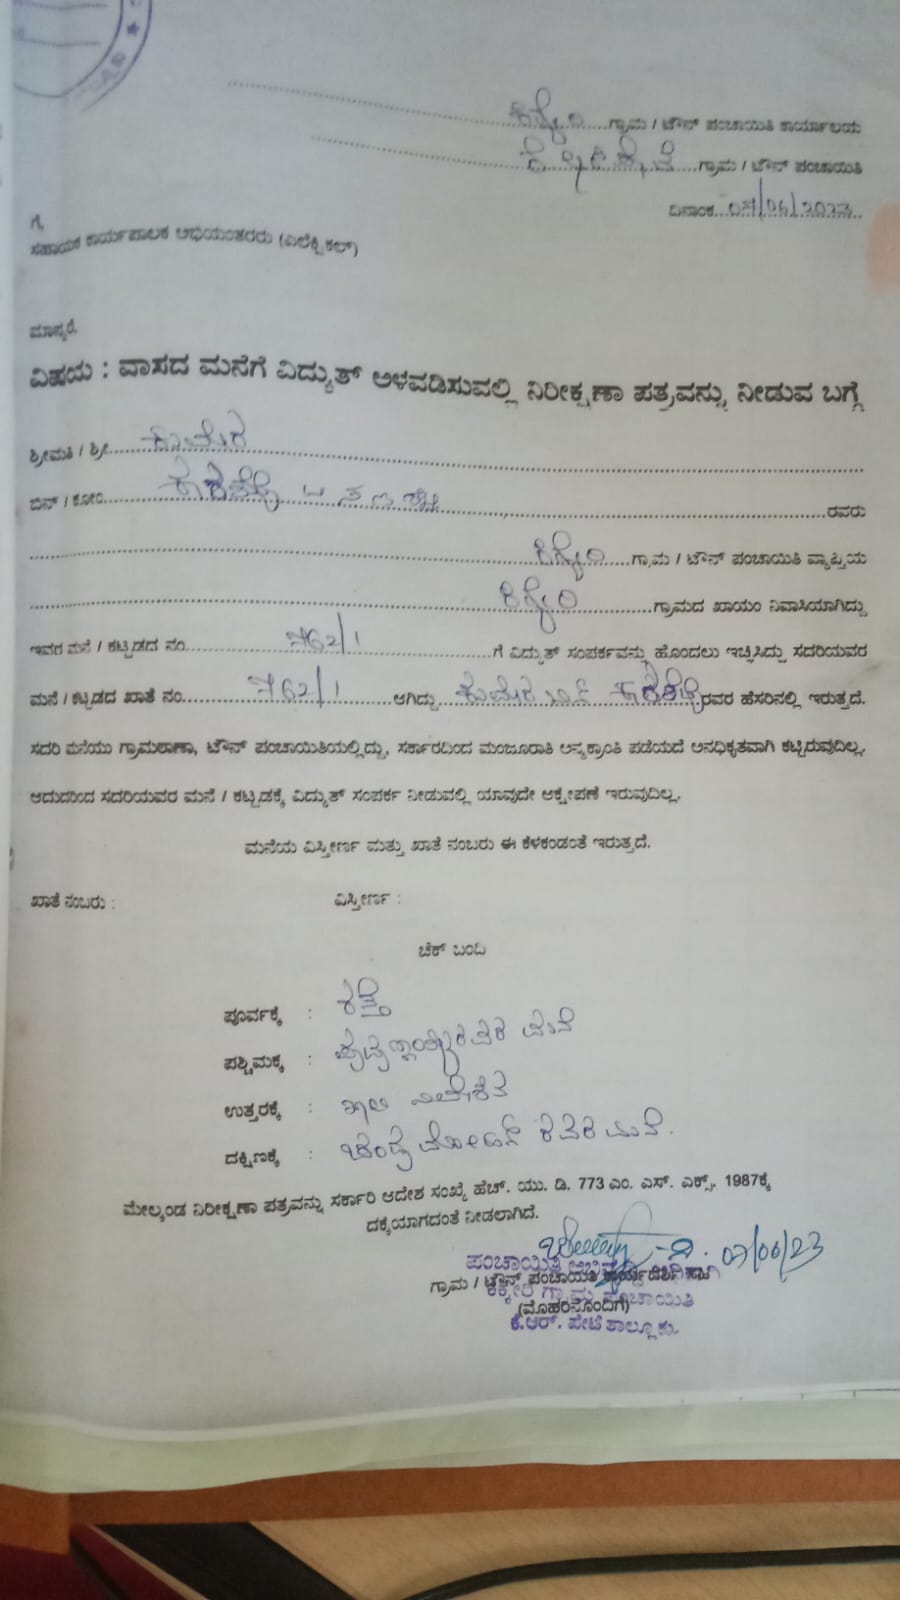 ಗ್ರಾಮ / ಟೌನ್ ಪಂಚಾಯಿತಿ ಕಾರ್ಯಾಲಯ
ಗ್ರಾಮ / ಟೌನ್ ಪಂಚಾಯಿತಿ
ದಿನಾಂಕ 07/06/2023
ಗೆ,
ಸಹಾಯಕ ಕಾರ್ಯಪಾಲಕ ಅಭಿಯಂತರರು (ಎಲೆಕ್ಟ್ರಿಕಲ್)
ಮಾನ್ಯರೆ,
ವಿಷಯ : ವಾಸದ ಮನೆಗೆ ವಿದ್ಯುತ್ ಅಳವಡಿಸುವಲ್ಲಿ ನಿರೀಕ್ಷಣಾ ಪತ್ರವನ್ನು ನೀಡುವ ಬಗ್ಗೆ
ಶ್ರೀಮತಿ / ಶ್ರೀ ಕುಮಾರ
ಬಿನ್ / ಕೋಂ ರವರು
ಕಿಕ್ಕೇರಿ ಗ್ರಾಮ / ಟೌನ್ ಪಂಚಾಯಿತಿ ವ್ಯಾಪ್ತಿಯ
ಕಿಕ್ಕೇರಿ ಗ್ರಾಮದ ಖಾಯಂ ನಿವಾಸಿಯಾಗಿದ್ದು
ಇವರ ಮನೆ / ಕಟ್ಟಡದ ನಂ. 762/1 ಗೆ ವಿದ್ಯುತ್ ಸಂಪರ್ಕವನ್ನು ಹೊಂದಲು ಇಚ್ಛಿಸಿದ್ದು ಸದರಿಯವರ
ಮನೆ / ಕಟ್ಟಡದ ಖಾತೆ ನಂ. 762/1 ಆಗಿದ್ದು ರವರ ಹೆಸರಿನಲ್ಲಿ ಇರುತ್ತದೆ.
ಸದರಿ ಮನೆಯು ಗ್ರಾಮಠಾಣಾ, ಟೌನ್ ಪಂಚಾಯಿತಿಯಲ್ಲಿದ್ದು, ಸರ್ಕಾರದಿಂದ ಮಂಜೂರಾತಿ ಅನ್ಯಕ್ರಾಂತಿ ಪಡೆಯದೆ ಅನಧಿಕೃತವಾಗಿ ಕಟ್ಟಿರುವುದಿಲ್ಲ.
ಆದುದರಿಂದ ಸದರಿಯವರ ಮನೆ / ಕಟ್ಟಡಕ್ಕೆ ವಿದ್ಯುತ್ ಸಂಪರ್ಕ ನೀಡುವಲ್ಲಿ ಯಾವುದೇ ಆಕ್ಷೇಪಣೆ ಇರುವುದಿಲ್ಲ.
ಮನೆಯ ವಿಸ್ತೀರ್ಣ ಮತ್ತು ಖಾತೆ ನಂಬರು ಈ ಕೆಳಕಂಡಂತೆ ಇರುತ್ತದೆ.
ಖಾತೆ ನಂಬರು : ವಿಸ್ತೀರ್ಣ :
ಚೆಕ್ ಬಂದಿ
ಪೂರ್ವಕ್ಕೆ : ರಸ್ತೆ
ಪಶ್ಚಿಮಕ್ಕೆ : ಮನೆ
ಉತ್ತರಕ್ಕೆ : ಖಾಲಿ ನಿವೇಶನ
ದಕ್ಷಿಣಕ್ಕೆ : ರವರ ಮನೆ.
ಮೇಲ್ಕಂಡ ನಿರೀಕ್ಷಣಾ ಪತ್ರವನ್ನು ಸರ್ಕಾರಿ ಆದೇಶ ಸಂಖ್ಯೆ ಹೆಚ್. ಯು. ಡಿ. 773 ಎಂ. ಎಸ್. ಎಕ್ಸ್. 1987ಕ್ಕೆ
ದಕ್ಕೆಯಾಗದಂತೆ ನೀಡಲಾಗಿದೆ.
07/06/23
ಪಂಚಾಯಿತಿ ಅಭಿವೃದ್ಧಿ ಅಧಿಕಾರಿ
ಗ್ರಾಮ / ಟೌನ್ ಪಂಚಾಯಿತಿ ಕಾರ್ಯದರ್ಶಿ ಸಹಿ
ಕಿಕ್ಕೇರಿ ಗ್ರಾಮ ಪಂಚಾಯಿತಿ
(ಮೊಹರಿನೊಂದಿಗೆ)
ಕೆ.ಆರ್. ಪೇಟೆ ತಾಲ್ಲೂಕು.